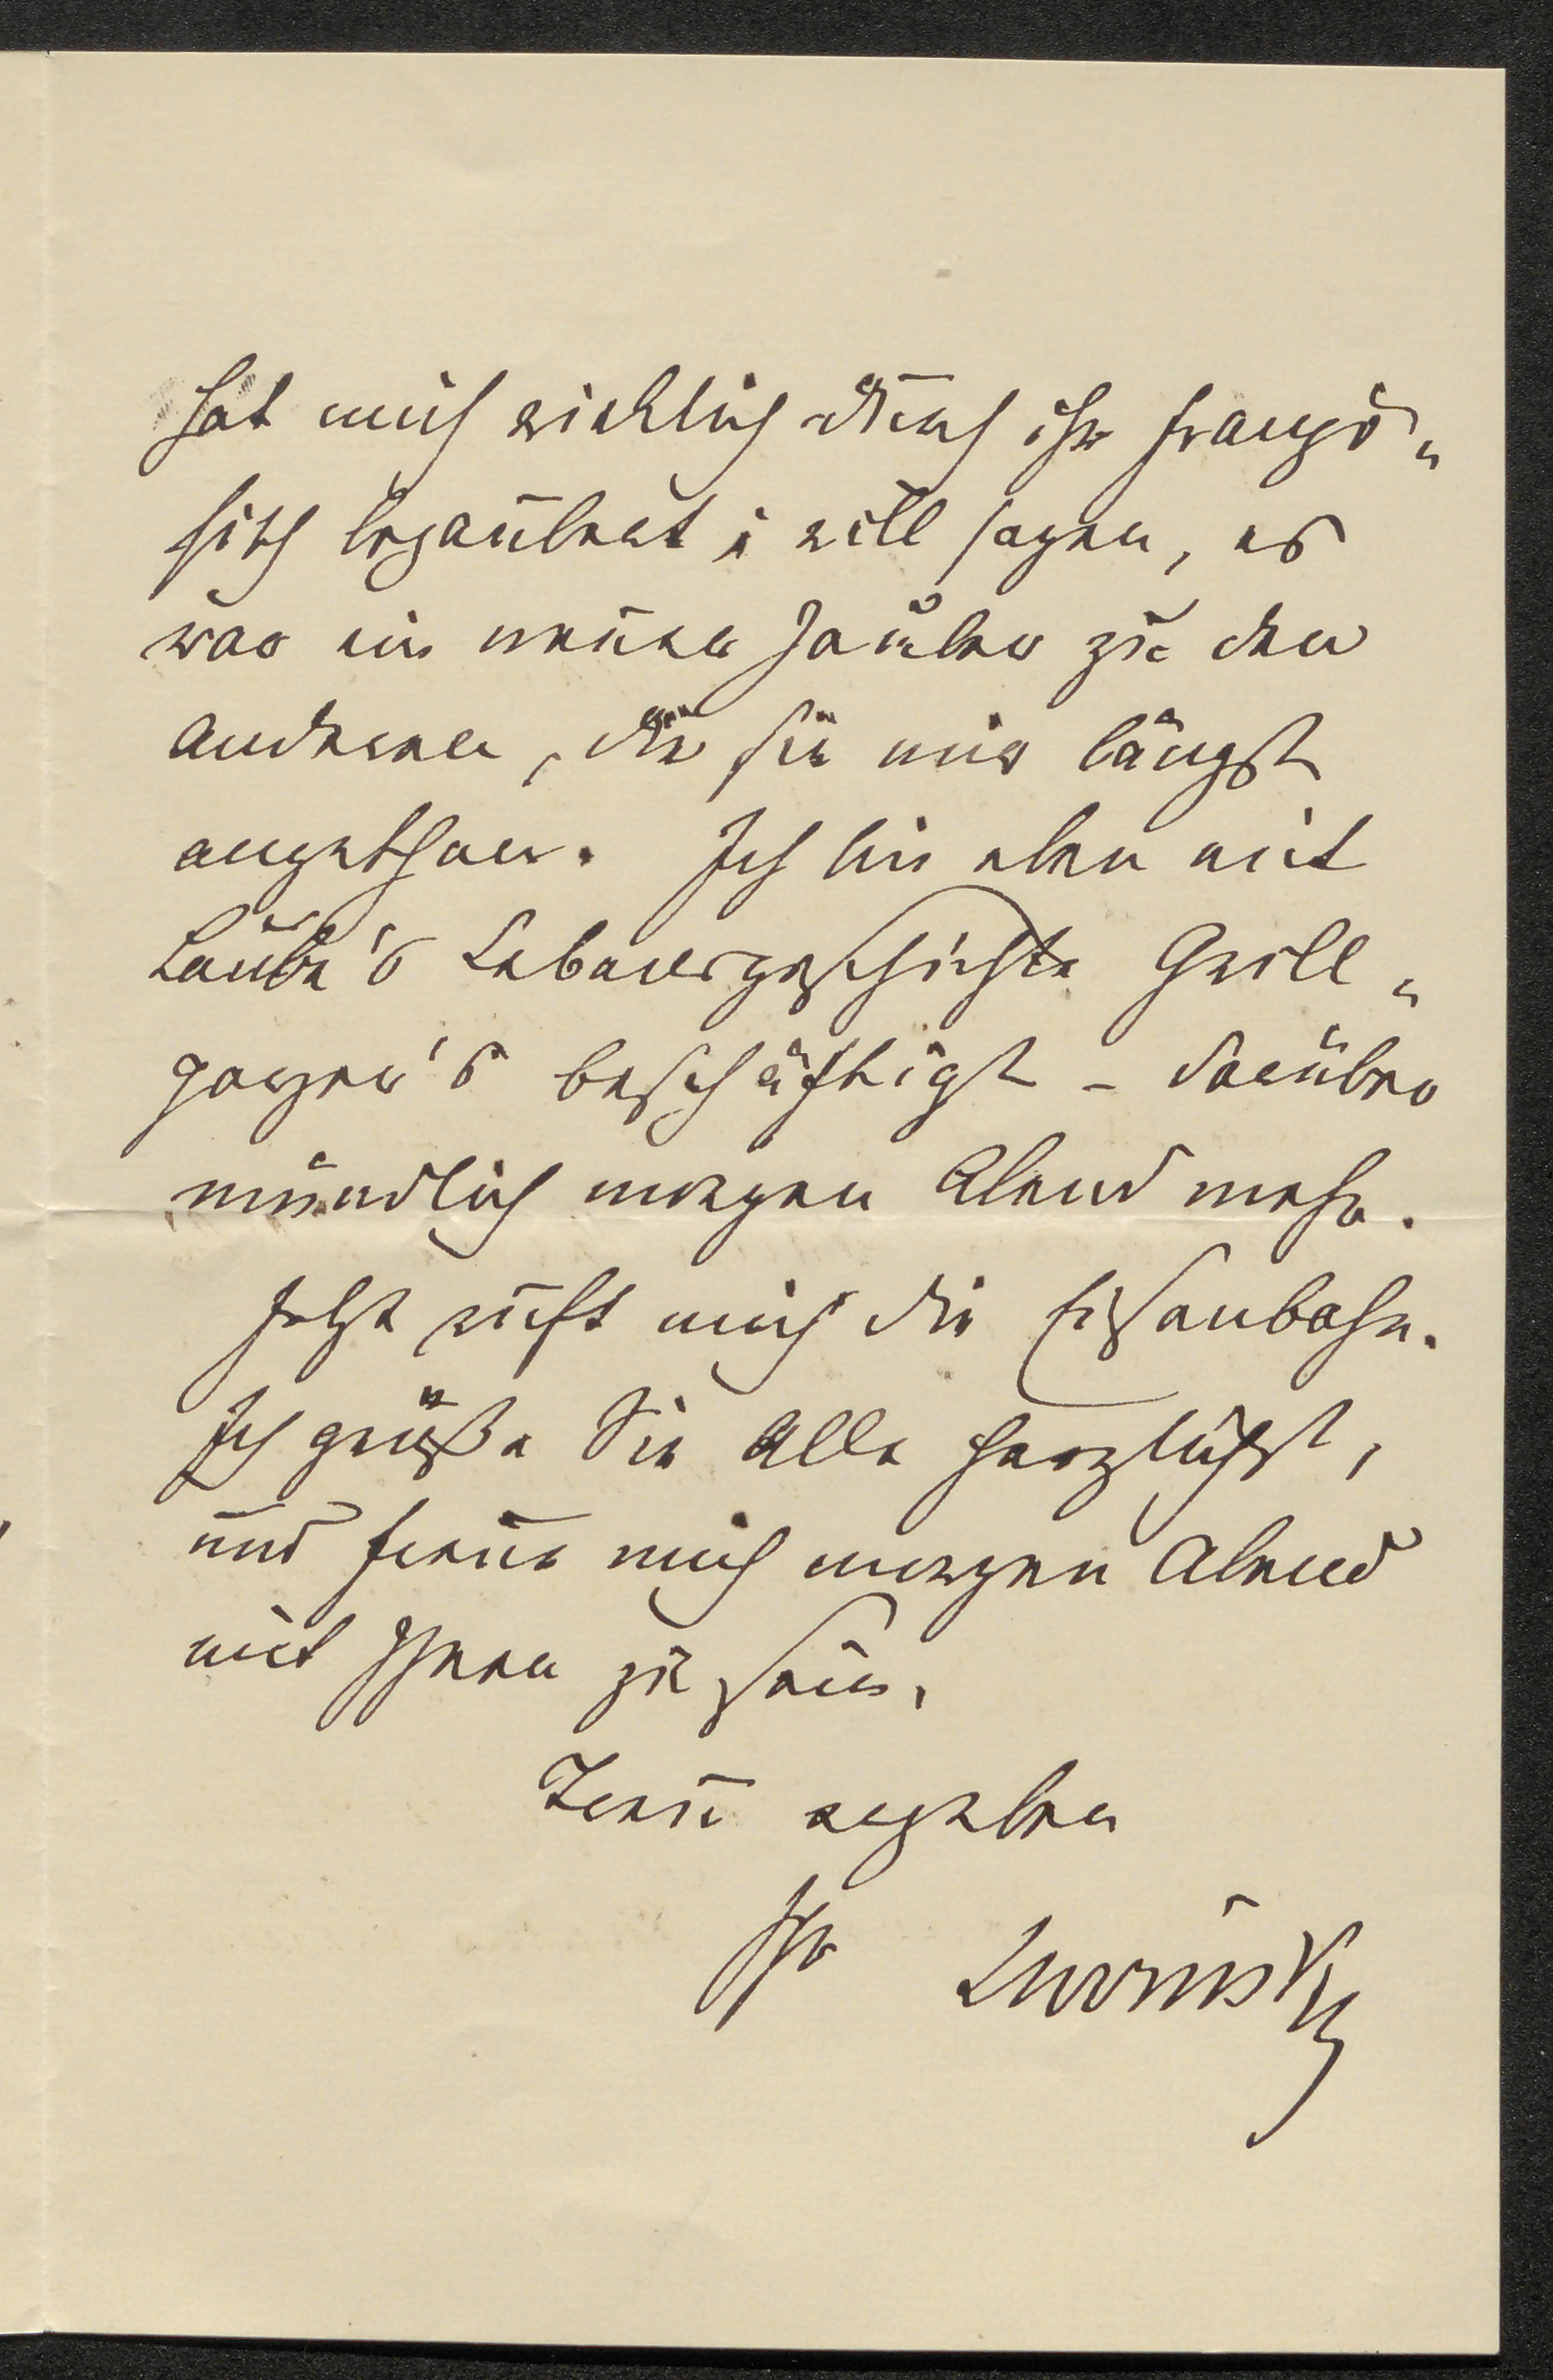 hat mich wirklich durch ihr franzö„
sisch bezaubert; will sagen, es
war ein neuer Zauber zu den
anderen, die sie mir längst
angethan. Ich bin eben mit
Laube's Lebensgeschichte Grill„
parzer's beschäftigt – darüber
mündlich morgen Abend mehr.
Jetzt ruft mich die Eisenbahn.
Ich grüße Sie Alle herzlichst,
und freue mich morgen Abend
mit Ihnen zu sein.
Treu ergeben
Ihr Lewinsky